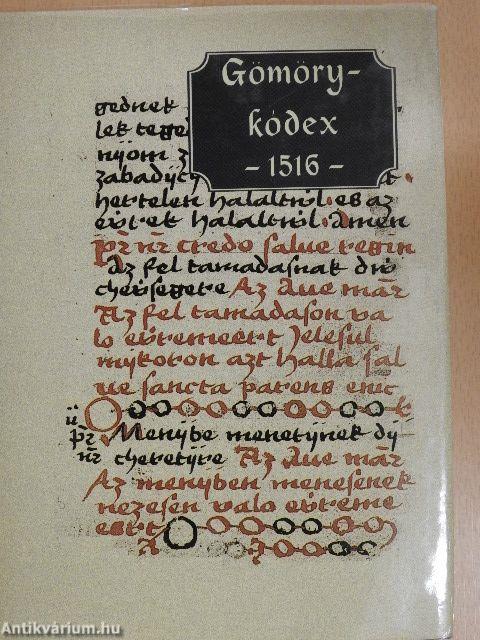 Gömöry-
kódex
- 1516 -
gednek
lek
nijom z
zabadijc
hertelen halaltwl. es az
ewrek halaltwl. Amen
pr nr credo salue regin
Az fel tamadasnak diw
chewsegere Az Aue mar
Az fel tamadason va
lo ewremeert Jelesul
mykoron azt halla sal
ue sancta parens enic
ü
pr Menybe menetijnek dij
nr cheretijre Az Aue mar
Az menyben menesenek
nezesen valo ewreme
eert
Antikvárium.hu